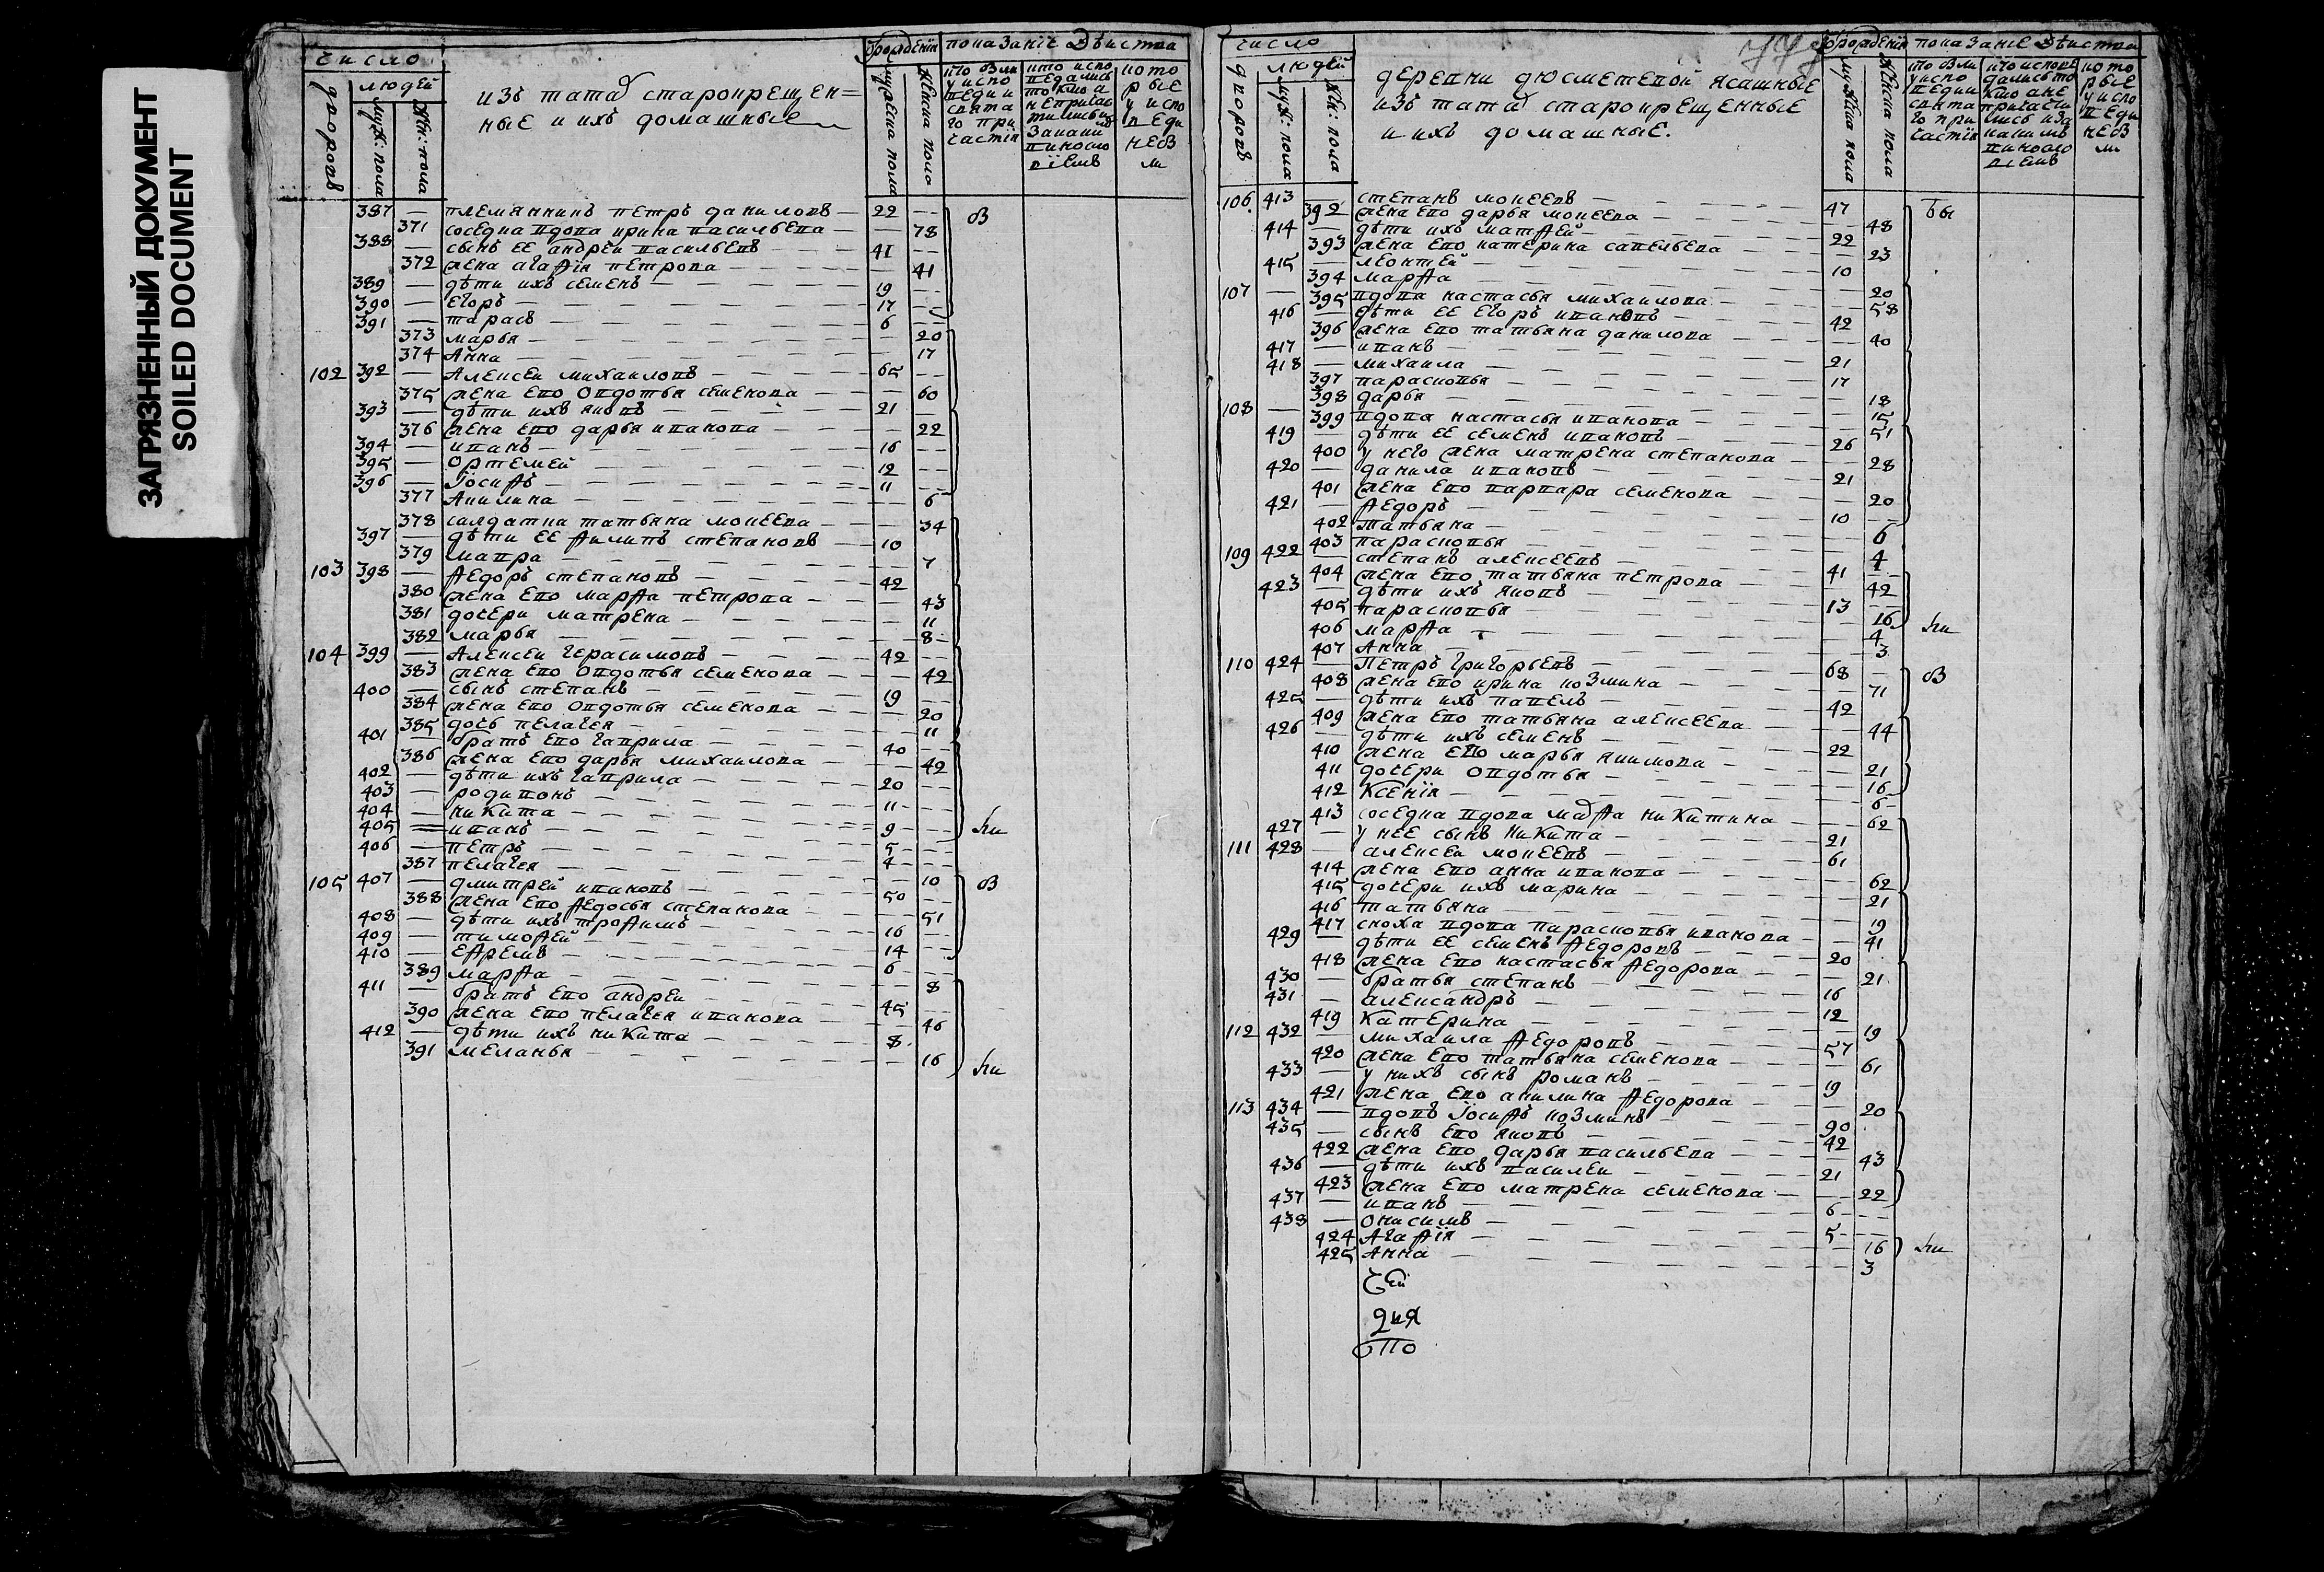 ЗАГРЯЗНЕННЫЙ ДОКУМЕНТ
SOILED DOCUMENT
число
людей
дворовъ
муж: пола
жен: пола
изъ татар старокрещен=
ные и ихъ домашные
мужеска пола
женска пола
показание действа
387 — племянникъ петръ даниловъ — 22
371 соседка вдова ирина васильева — 78
388 — сынъ ее андрей васильевъ — 41
372 жена агафiя петрова — 41
389 — дѣти ихъ семенъ — 19
390 — егоръ — 17
391 — тарасъ — 6
373 марья — 20
374 Анна — 17
102 392 — Алексей михаиловъ — 65
375 жена ево овдотья семенова — 60
393 — дѣти ихъ яковъ — 21
376 жена ево дарья иванова — 22
394 — иванъ — 16
395 — ортемей — 12
396 — Iосифъ — 11
377 Акилина — 6
378 салдатка татьяна мокеева — 34
397 — дѣти ее филипъ степановъ — 10
379 мавра — 7
103 398 — федоръ степановъ — 42
380 жена ево марфа петрова — 43
381 дочери матрена — 11
382 марья — 8
104 399 — Алексей герасимовъ — 42
383 жена ево овдотья семенова — 42
400 — сынъ степанъ — 19
384 жена ево овдотья семенова — 20
385 дочь пелагея — 11
401 — братъ ево гаврила — 40
386 жена ево дарья михаилова — 42
402 — дѣти ихъ гаврила — 20
403 — родивонъ — 11
404 — никита — 9
405 — иванъ
406 — петръ — 5
387 пелагея — 4 10
105 407 — дмитрей ивановъ — 50
388 жена ево федосья степанова — 51
408 — дѣти ихъ трофимъ — 16
409 — тимофей — 14
410 — ефремъ — 6
389 марфа — 8
411 — братъ ево андрей — 45
390 жена ево пелагея иванова — 46
412 — дѣти ихъ никита — 8
391 меланья — 16
число
людей
дворовъ
муж: пола
жен: пола
деревни дюсметевой ясашные
изъ татар старокрещенные
и ихъ домашные.
мужска пола
женска пола
показание действа
106 413 степанъ мокеевъ — 47
392 жена ево дарья мокеева — 48
414 — дѣти ихъ матфей — 22
393 жена ево катерина савельева — 23
415 — леонтей — 10
394 марфа — 20
107 — 395 вдова настасья михаилова — 58
416 — дѣти ее егоръ ивановъ — 42
396 жена ево татьяна данилова — 40
417 — иванъ — 21
418 — михаила — 17
397 парасковья — 18
398 дарья — 15
108 — 399 вдова настасья иванова — 51
419 — дѣти ее семенъ ивановъ — 26
400 у него жена матрена степанова — 28
420 — данила ивановъ — 21
401 жена ево варвара семенова — 20
421 — федоръ — 10
402 татьяна — 6
403 парасковья — 4
109 422 — степанъ алексеевъ — 41
404 жена ево татьяна петрова — 42
423 — дѣти ихъ яковъ — 13
405 парасковья — 16
406 марфа — 4
407 Анна — 3
110 424 — Петръ григорьевъ — 68
408 жена ево ирина козмина — 71
425 — дѣти ихъ павелъ — 42
409 жена ево татьяна алексеева — 44
426 — дѣти ихъ семенъ — 22
410 жена ево марья якимова — 21
411 дочери овдотья — 16
412 Ксенiя — 6
413 соседка вдова марфа никитина — 62
427 — у нее сынъ никита — 21
111 428 — алексей мокеевъ — 61
414 жена ево анна иванова — 62
415 дочери ихъ марина — 21
416 татьяна — 19
417 сноха вдова парасковья иванова — 41
429 — дѣти ее семенъ федоровъ — 20
418 жена ево настасья федорова — 21
430 — братья степанъ — 16
431 — александръ — 12
419 катерина — 19
112 432 — михаила федоровъ — 57
420 жена ево татьяна семенова — 61
433 — у нихъ сынъ романъ — 19
421 жена ево акилина федорова — 20
113 434 — вдовъ Iосифъ козминъ — 90
435 — сынъ ево яковъ — 42
422 жена ево дарья васильева — 43
436 — дѣти ихъ василей — 21
423 жена ево матрена семенова — 22
437 — иванъ — 6
438 — онисимъ — 5
424 Агафiя — 16
425 Анна — 3